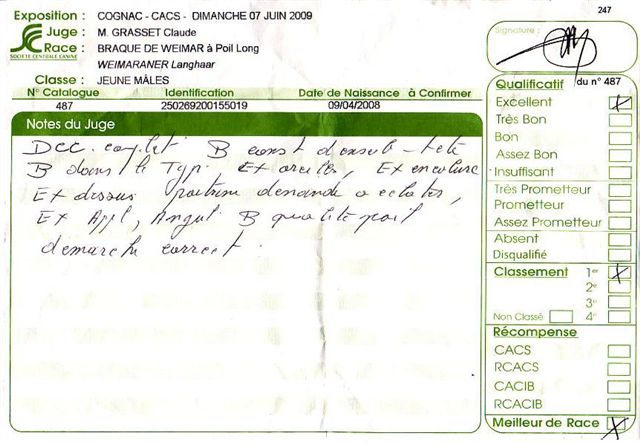 247
Exposition : COGNAC - CACS - DIMANCHE 07 JUIN 2009
Juge : M. GRASSET Claude
Race : BRAQUE DE WEIMAR à Poil Long
SOCIÉTÉ CENTRALE CANINE
WEIMARANER Langhaar
Classe : JEUNE MÂLES
N° Catalogue Identification Date de Naissance à Confirmer
487 250269200155019 09/04/2008
Notes du Juge
Dcc. complet B const d'ensemble tete
B dans le Type Ex oreilles, Ex encolure
Ex dessus poitrine demande a eclater,
Ex Appl, Angul B qualite poil
demarche correct.
Signature :
Qualificatif du n° 487
Excellent X
Très Bon
Bon
Assez Bon
Insuffisant
Très Prometteur
Prometteur
Assez Prometteur
Absent
Disqualifié
Classement 1er X
2e
3e
Non Classé 4e
Récompense
CACS
RCACS
CACIB
RCACIB
Meilleur de Race X